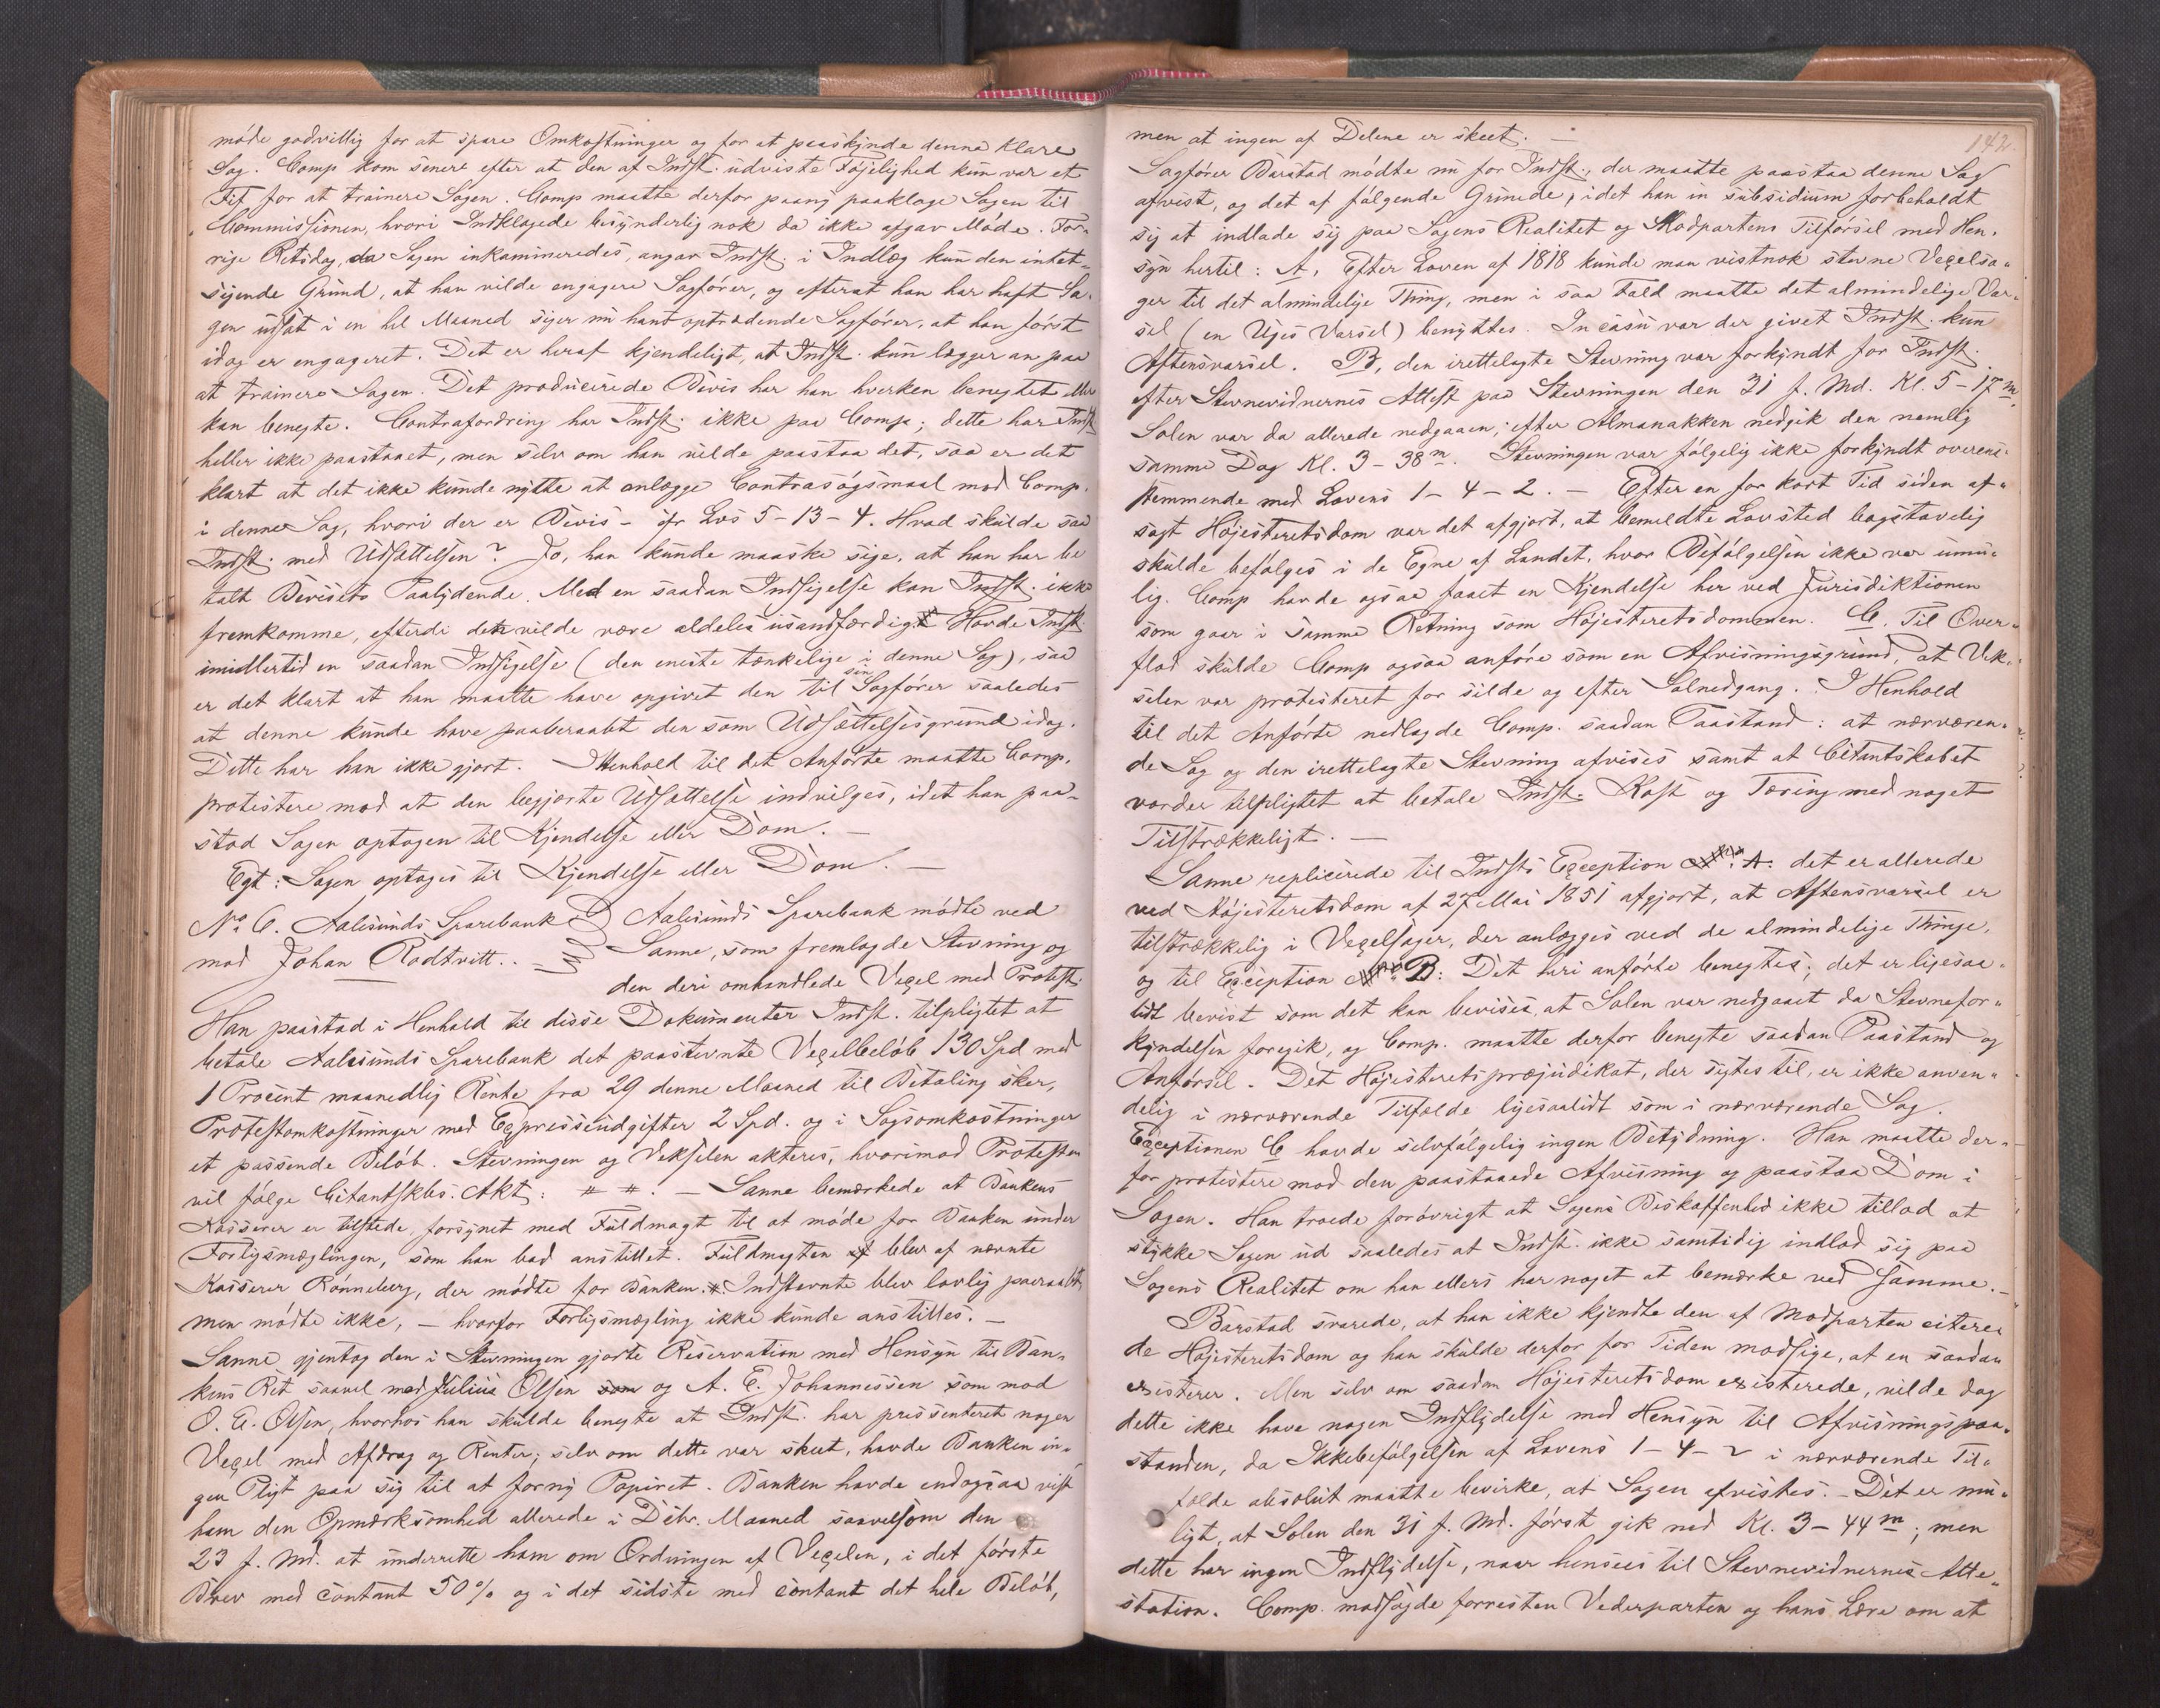 møde godvillig for at spare Omkostninger og for at paaskynde denne klare
Sag. Comp kom senere efter at den af Indst. udviste Føjelighed kun var et
Fif for at trainere Sagen. Comp maatte derfor paany paaklage Sagen til
Commissionen, hvori Indklagede besynderlig nok da ikke afgav Møde. For-
rige Retsdag, da Sagen inkamineredes, angav Indst. i Indlæg kun den intet-
sigende Grund, at han vilde engagere Sagfører, og efterat han har haft Sa-
gen udsat i en hel Maaned siger nu hans optrædende Sagfører, at han først
idag er engageret. Det er heraf kjendeligt, at Indst. kun lægger an paa
at trainere Sagen. Det producirede Bevis har han hverken benegtet eller
kan benegte. Contrafordring har Indst. ikke paa Comp; dette har Indst
heller ikke paastaaet, men selv om han vilde paastaa det, saa er det
klart at det ikke kunde nytte at anlægge Contrasøgsmaal mod Comp.
i denne Sag, hvori der er Bevis - cfr Lvs 5-13-4. Hvad skulde saa
Indst. med Udsættelsen? Jo, han kunde maaske sige, at han har be
talt Bevisets Paalydende. Med en saadan Indsigelse kan Indst. ikke
fremkomme, efterdi den vilde være aldeles usandfærdig. Havde Indst.
imidlertid en saadan Indsigelse (den eneste tænkelige i denne Sag), saa
er det klart at han maatte have opgivet den til sin Sagfører saaledes
at denne kunde have paaberaabt den som Udsættelsesgrund idag.
Dette har han ikke gjort. I Henhold til det Anførte maatte Comp.
protestere mod at den begjærte Udsættelse indvilges, idet han paa-
stod Sagen optagen til Kjendelse eller Dom. —
Egt: Sagen optages til Kjendelse eller Dom. —
No 6. Aalesunds Sparebank Aalesunds Sparebank mødte ved
mod Johan Rødtvitt. . — Sanne, som fremlagde Stevning og
den deri omhandlede Vexel med Protest.
Han paastod i Henhold til disse Dokumenter Indst. tilpligtet at
betale Aalesunds Sparebank det paastevnte Vexelbeløb 130 Spd med
1 Procent maanedlig Rente fra 29 denne Maaned til Betaling sker,
Protestomkostninger med Expresseudgifter 2 Spd. og i Sagsomkostninger
et passende Beløb. Stevningen og Vekselen akteres, hvorimod Protesten
vil følge Citantskbs. Akt: # #. — Sanne bemærkede at Bankens
Kasserer er tilstede, forsynet med Fuldmagt til at møde for Banken under
Forligsmæglingen, som han bad anstillet. Fuldmagten blev af nævnte
Kasserer Rønneberg, der mødte for Banken. #. Indstevnte blev lovlig paaraabt,
men mødte ikke, — hvorfor Forligsmægling ikke kunde anstilles. —
Sanne gjentog den i Stevningen gjorte Reservation med Hensyn til Ban-
kens Ret saavel mod Julius Olsen som og A. E. Johannessen som mod
O. A. Olsen, hvorhos han skulde benegte at Indst. har præsenteret nogen
Vexel med Afdrag og Renter; selv om dette var skeet, havde Banken in-
gen Pligt paa sig til at forny Papiret. Banken havde endogsaa vist
ham den Opmærksomhed allerede i Debr. Maaned saavelsom den
23 f. Md. at underrette ham om Ordningen af Vexelen, i det første
Brev med contant 50% og i det sidste med contant det hele Beløb,
142.
men at ingen af Delene er skeet. —
Sagfører Barstad mødte nu for Indst., der maatte paastaa denne Sag
afvist, og det af følgende Grunde, idet han in subsidium forbeholdt
sig at indlade sig paa Sagens Realitet og Modpartens Tilførsel med Hen-
syn hertil: A, Efter Loven af 1818 kunde man vistnok stevne Vexelsa-
ger til det almindelige Thing, men i saa Fald maatte det almindelige Var-
sel (en Uges Varsel) benyttes. In casu var der givet Indst. kun
Aftensvarsel. B, den irettelagte Stevning var forkyndt for Indst.
efter Stevnevidnernes Attest paa Stevningen den 31 f. Md. Kl. 5-17m,
Solen var da allerede nedgaaen; efter Almanakken nedgik den nemlig
samme Dag Kl. 3-38m. Stevningen var følgelig ikke forkyndt overens-
stemmende med Lovens 1-4-2. — Efter en for kort Tid siden af-
sagt Højesteretsdom var det afgjort, at bemeldte Lovsted bogstavelig
skulde befølges i de Egne af Landet, hvor Befølgelsen ikke var umu-
lig. Comp havde ogsaa faaet en Kjendelse her ved Jurisdiktionen
som gaar i samme Retning som Højesteretsdommen. C. Til Over-
flod skulde Comp ogsaa anføre som en Afvisningsgrund, at Vek-
selen var protesteret for silde og efter Solnedgang. I Henhold
til det Anførte nedlagde Comp. saadan Paastand: at nærværen-
de Sag og den irettelagte Stevning afvises samt at Citantskabet
vorder tilpligtet at betale Indst. Kost og Tæring med noget
Tilstrækkeligt. —
Sanne replicerede til Indsts Exception A: det er allerede
ved Højesteretsdom af 27 Mai 1851 afgjort, at Aftensvarsel er
tilstrækkelig i Vexelsager, der anlægges ved de almindelige Thinge,
og til Exception B: Det heri anførte benegtes; det er ligesaa-
lidt bevist som det kan bevises, at Solen var nedgaaet da Stevnefor-
kyndelsen foregik, og Comp. maatte derfor benegte saadan Paastand og
Anførsel. Det Højesteretspræjudikat, der sigtes til, er ikke anven-
delig i nærværende Tilfælde ligesaalidt som i nærværende Sag.
Exceptionen C havde selvfølgelig ingen Betydning. Han maatte der-
for protestere mod den paastaaede Afvisning og paastaa Dom i
Sagen. Han troede forøvrigt at Sagens Beskaffenhed ikke tillod at
stykke Sagen ud saaledes at Indst. ikke samtidig indlod sig paa
Sagens Realitet om han ellers har noget at bemærke ved samme. —
Barstad svarede, at han ikke kjendte den af Modparten citere-
de Højesteretsdom og han skulde derfor for Tiden modsige, at en saadan
existerer. Men selv om saadan Højesteretsdom existerede, vilde dog
dette ikke have nogen Indflydelse med Hensyn til Afvisningspaa-
standen, da Ikkebefølgelsen af Lovens 1-4-2 i nærværende Til-
fælde absolut maatte bevirke, at Sagen afvistes. Det er mu-
ligt, at Solen den 31 f. Md. først gik ned Kl. 3-44m; men
dette har ingen Indflydelse, naar hensees til Stevnevidnernes Atte-
station. Comp. modsagde forresten Vederparten og hans Lære om at